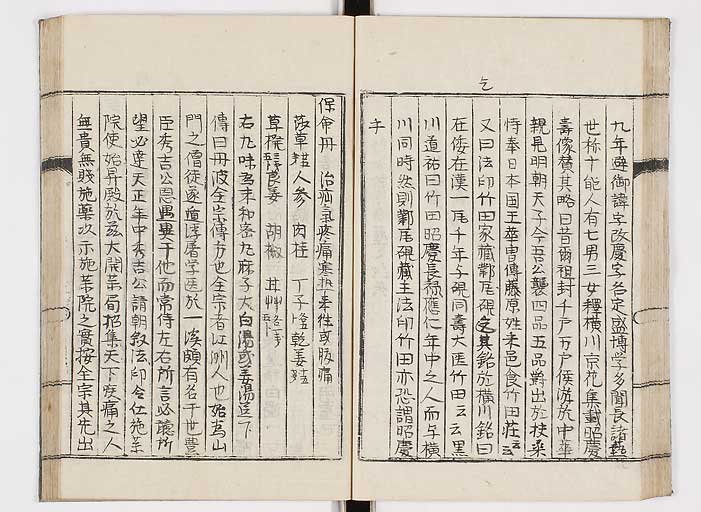 乞
九年避御諱字改慶字名定盛博学多聞長諸藝
世称十能人有七男三女釋横川京花集載昭慶
壽像賛其略曰昔爾祖封千戸万戸侯游於中華
親見明朝天子今吾公襲四品五品爵出於扶桑
恃奉日本国王華冑傳藤原姓来邑食竹田荘云云
又曰法印竹田家藏鄴瓦硯之其銘於横川銘曰
在倭在漢一瓦千年与硯同壽大匡竹田云云黒
川道祐曰竹田昭慶長禄應仁年中之人而与横
川同時然則鄴瓦硯藏主法印竹田亦恐謂昭慶
乎
保命丹 治疝氣疼痛寒熱来往或腹痛
莎草 人参 肉桂 丁子 乾姜
草 姜 胡椒
右九味為末和蜜丸麻子大白湯或姜湯送下
傳曰丹波全宗傳方也全宗者江洲人也始為山
門之僧徒遂還浮屠学医於一溪頗有名于世豊
臣秀吉公恩遇異于他而常侍左右所言必聽所
望必達天正年中秀吉公請朝叙法印令仕施薬
院使始昇殿於茲大開薬局招集天下疾痛之人
無貴無賤施薬以示施薬院之實按全宗其先出